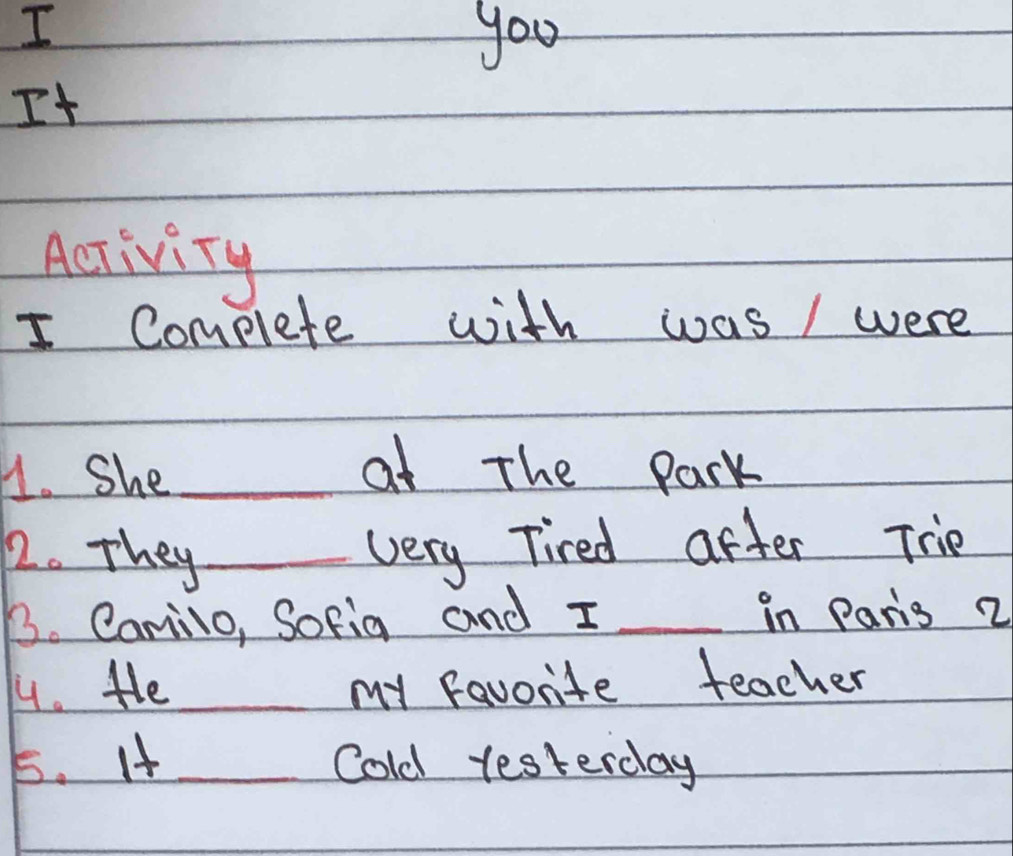 I you
It
Activity
I Complete with was / were
1. She ______ at The Park
2. They ______ Very Tired after Trip
3. Camilo, Sofia and I ____ in Paris 2
4. He ______ my Favorite teacher
5. It ______ Cold Yesterday